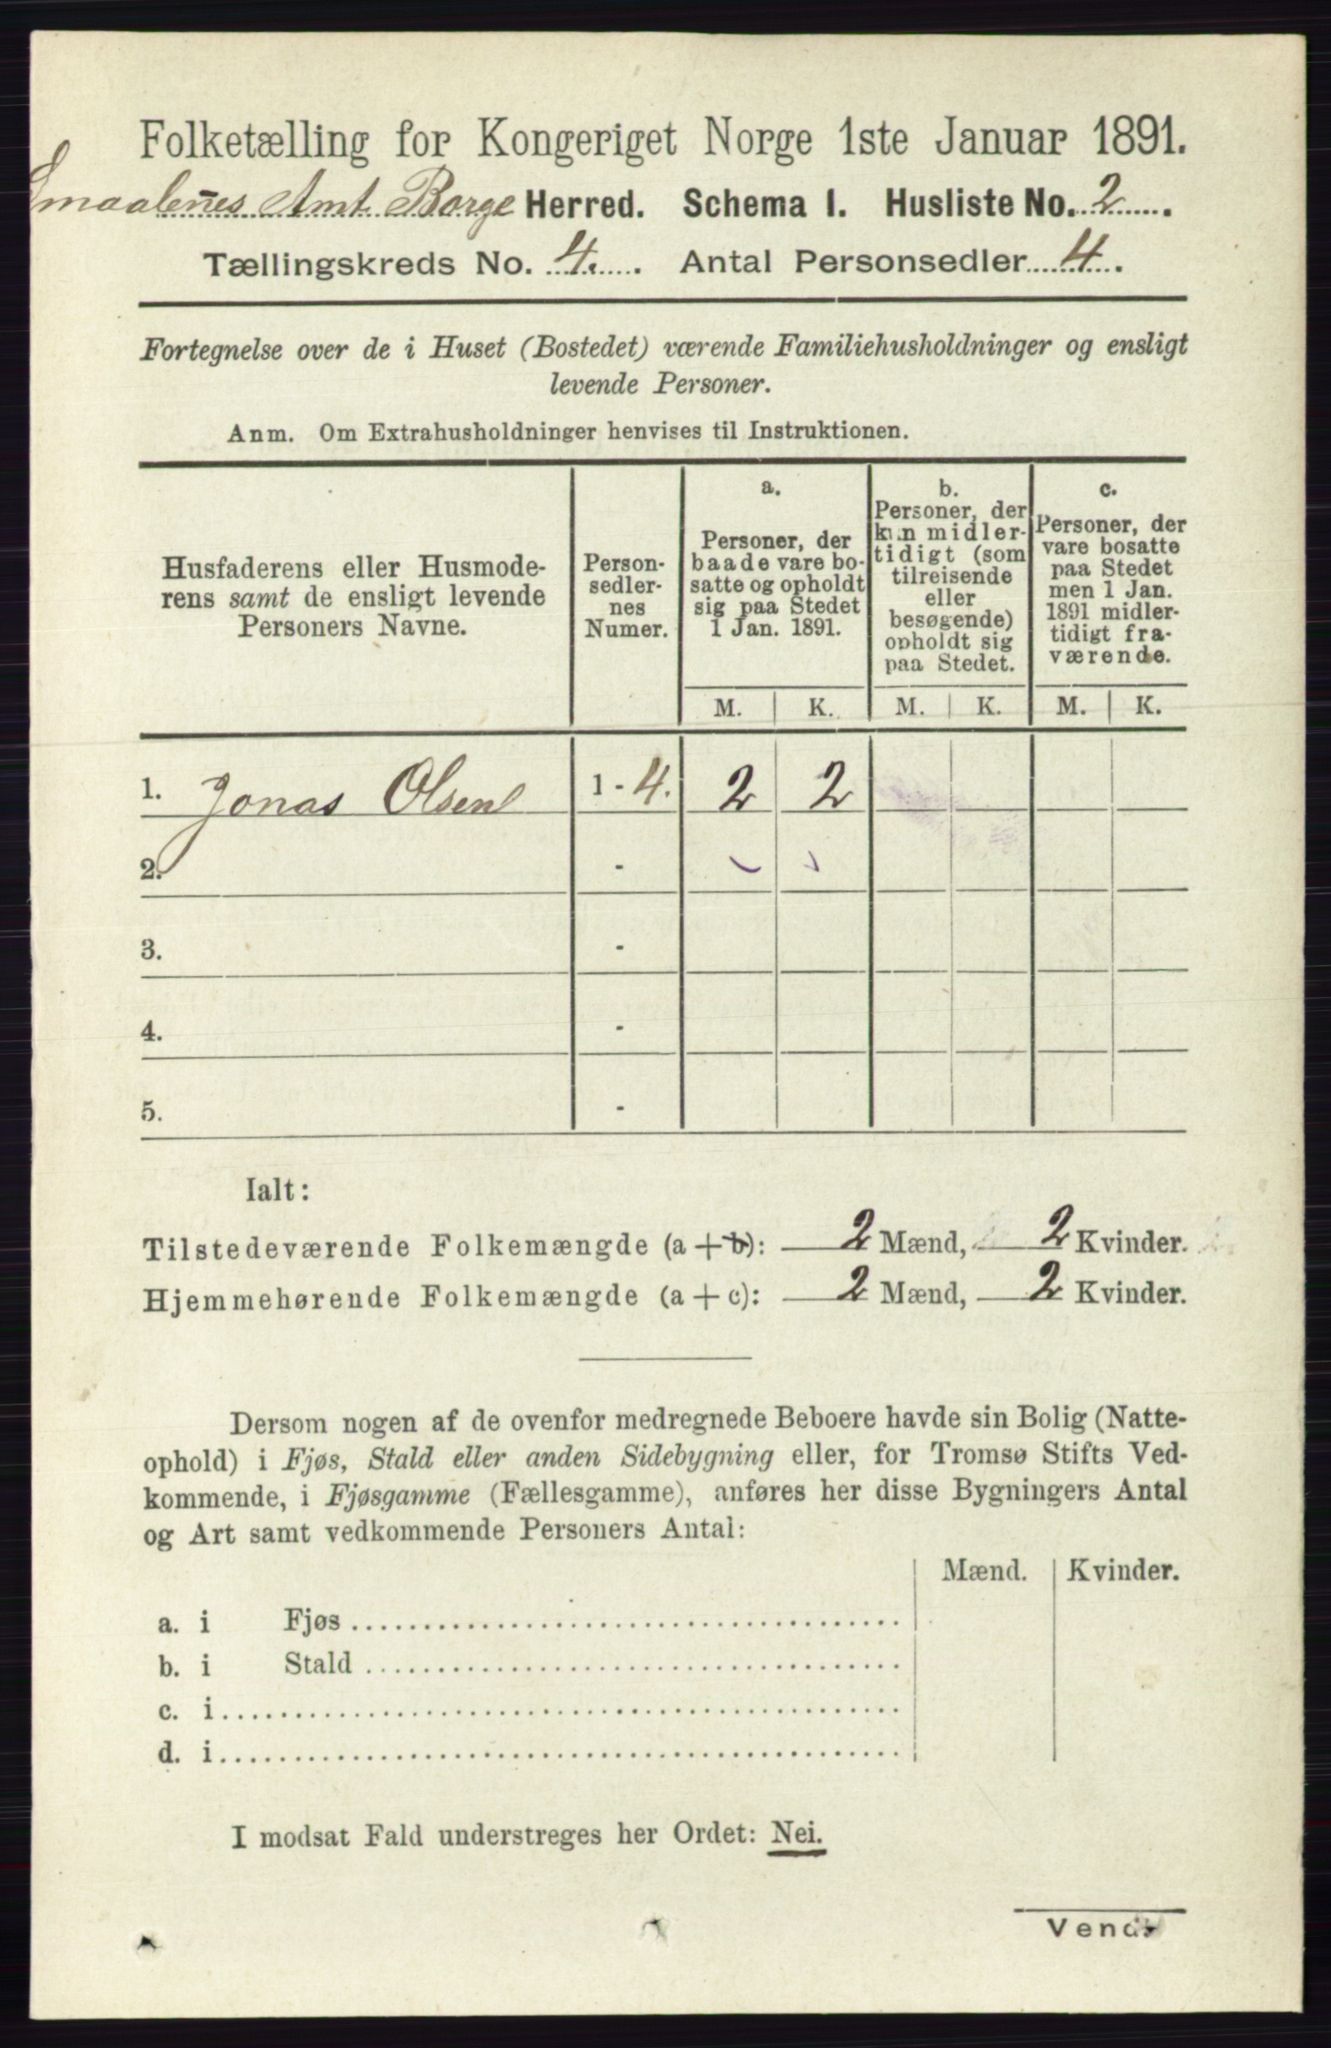 Folketælling for Kongeriget Norge 1ste Januar 1891.
Smaalenes Amt Borge Herred. Schema I. Husliste No. 2.
Tællingskreds No. 4. Antal Personsedler 4.
Fortegnelse over de i Huset (Bostedet) værende Familiehusholdninger og ensligt
levende Personer.
Anm. Om Extrahusholdninger henvises til Instruktionen.
Husfaderens eller Husmode-
rens samt de ensligt levende
Personers Navne.
Person-
sedler-
nes
Numer.
a.
Personer, der
baade vare bo-
satte og opholdt
sig paa Stedet
1 Jan. 1891.
b.
Personer, der
kun midler-
tidigt (som
tilreisende
eller
besøgende)
opholdt sig
paa Stedet.
c.
Personer, der
vare bosatte
paa Stedet
men 1 Jan.
1891 midler-
tidigt fra-
værende.
M. K. M. K. M. K.
1. Jonas Olsen 1 - 4. 2 2
2. -
3. -
4. -
5. -
Ialt:
Tilstedeværende Folkemængde (a + b): 2 Mænd, 2 Kvinder.
Hjemmehørende Folkemængde (a + c): 2 Mænd, 2 Kvinder.
Dersom nogen af de ovenfor medregnede Beboere havde sin Bolig (Natte-
ophold) i Fjøs, Stald eller anden Sidebygning eller, for Tromsø Stifts Ved-
kommende, i Fjøsgamme (Fællesgamme), anføres her disse Bygningers Antal
og Art samt vedkommende Personers Antal:
Mænd. Kvinder.
a. i Fjøs
b. i Stald
c. i
d. i
I modsat Fald understreges her Ordet: Nei.
Vend.